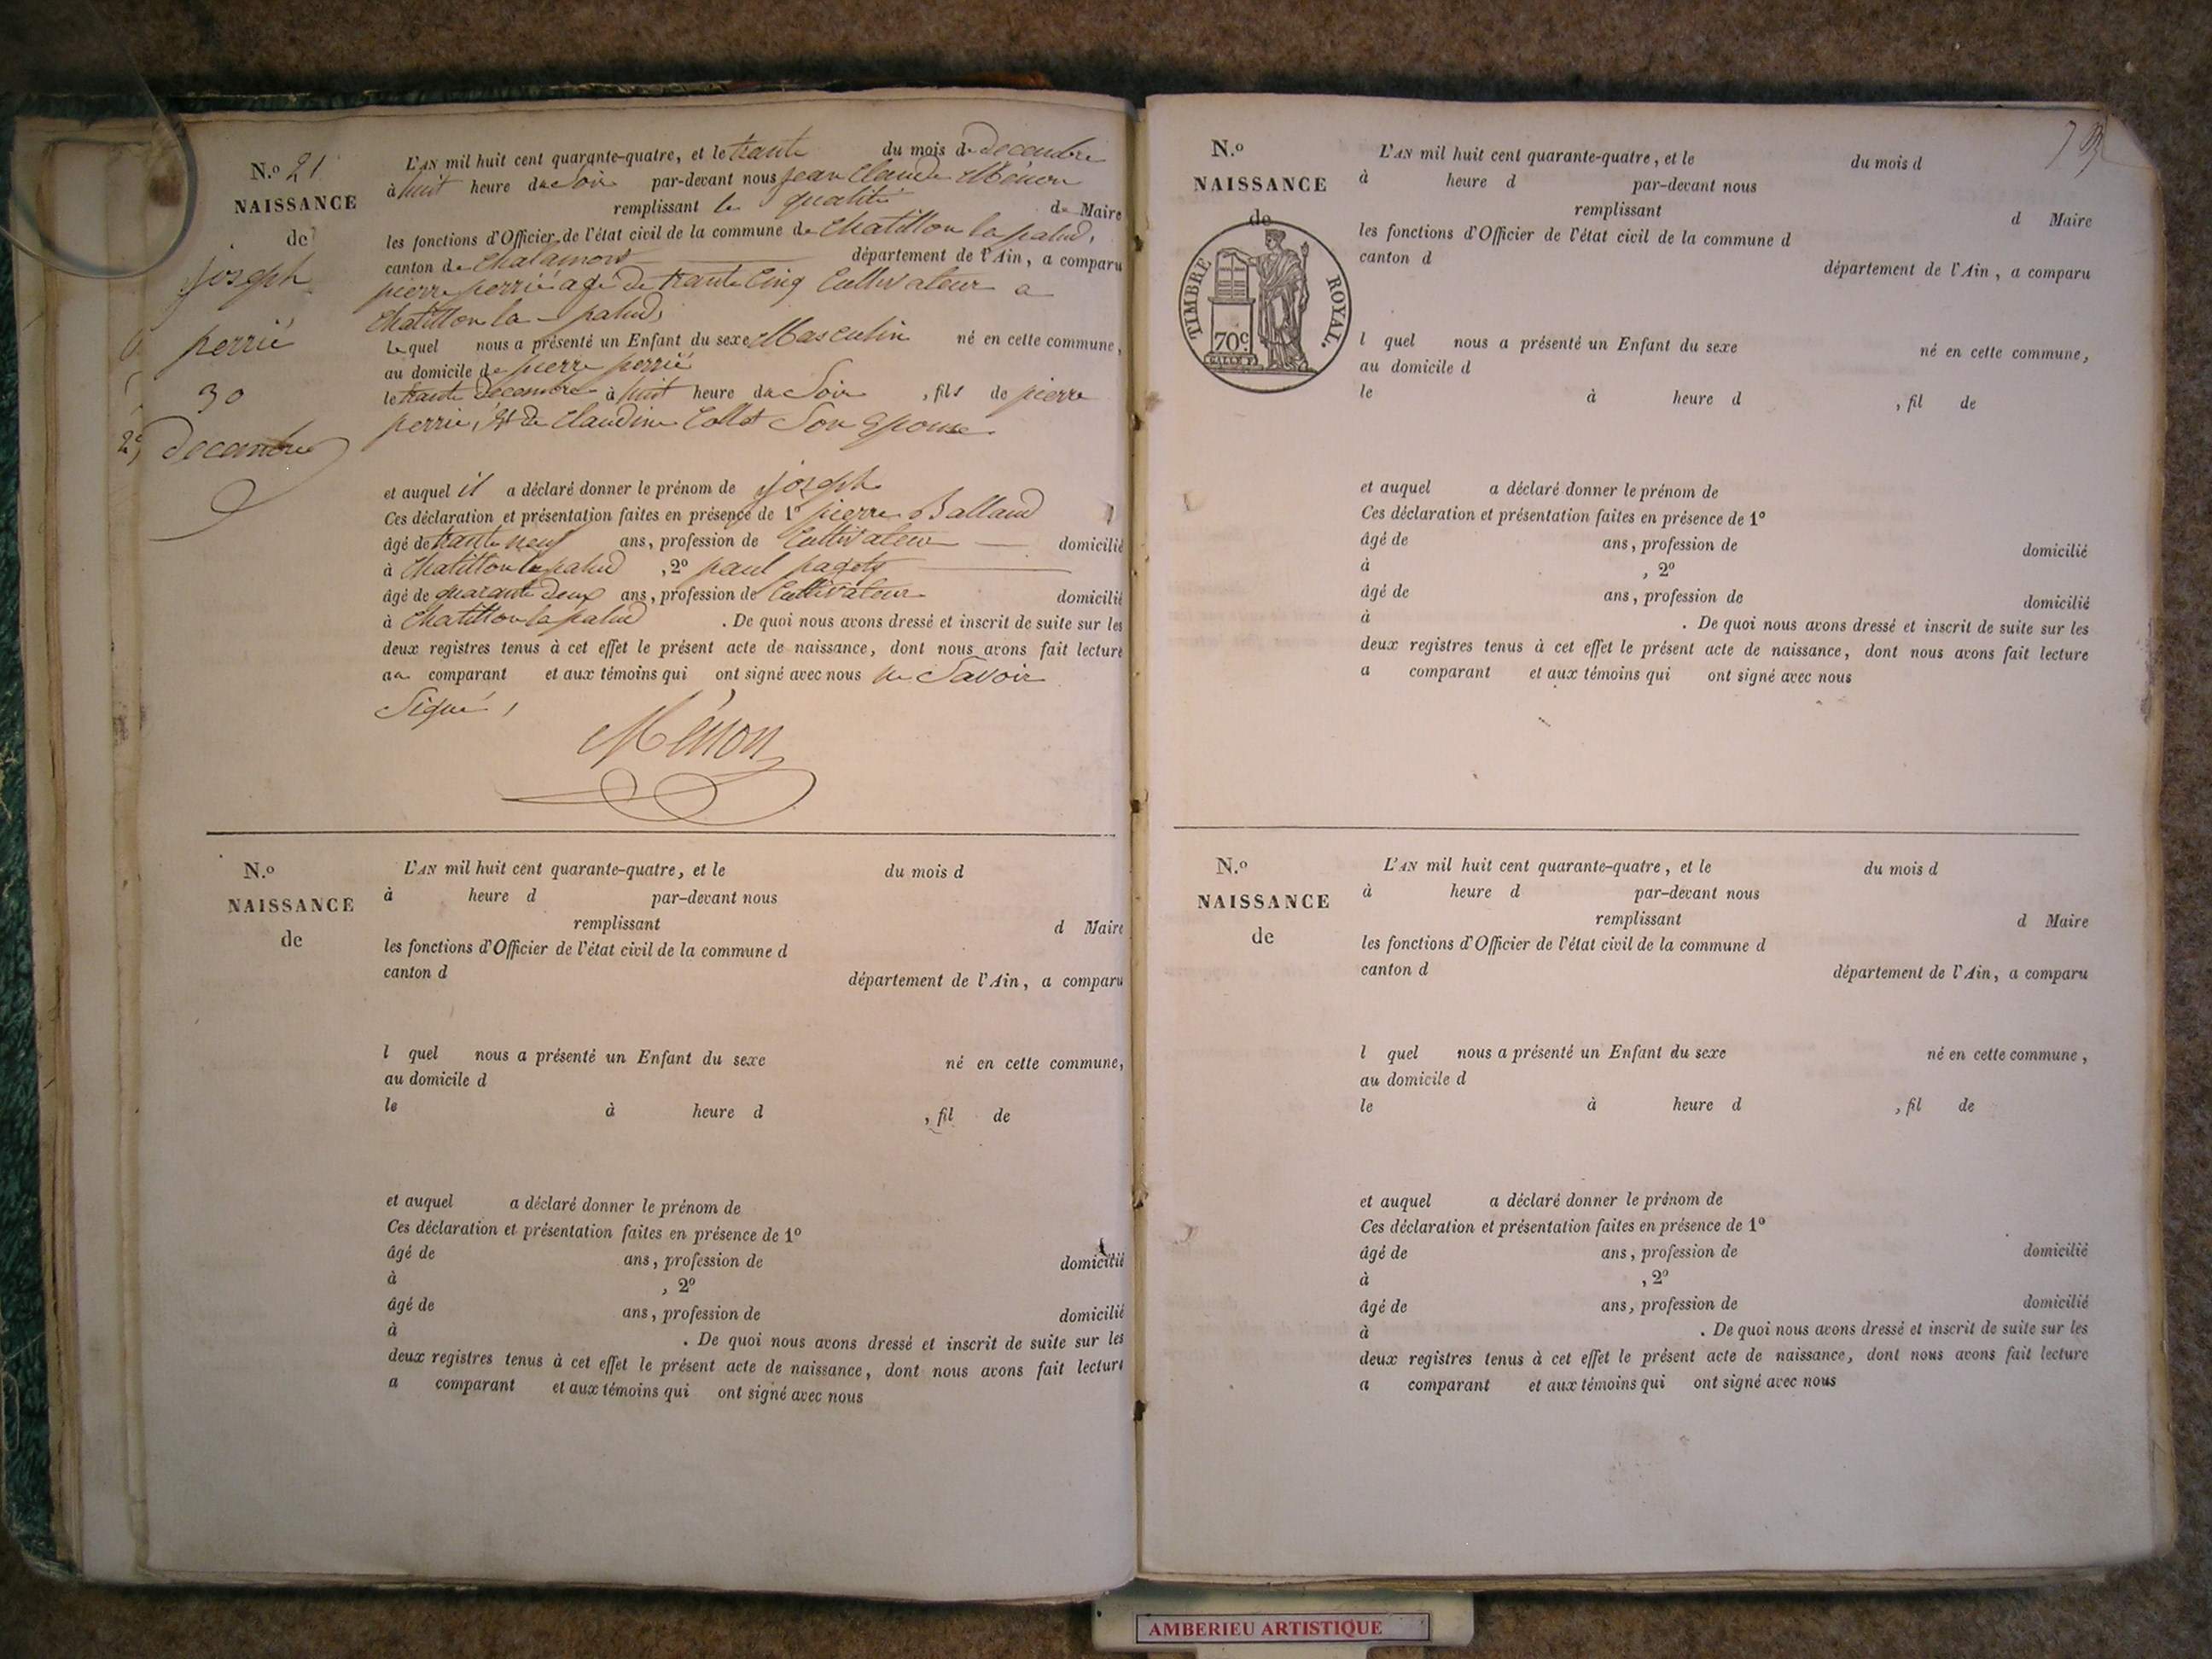 N.o 21
NAISSANCE
de
joseph
perrié
30
decembre
L'AN mil huit cent quarante-quatre, et le trante du mois de decembre
à huit heure du Soir par-devant nous jean Claude Ménon
remplissant la qualité de Maire
les fonctions d'Officier de l'état civil de la commune de Chatillon la palud,
canton de Chalamont département de l'Ain, a comparu
pierre perrié agé de trante Cinq Cultivateur a
Chatillon la - palud,
Lequel nous a présenté un Enfant du sexe Masculin né en cette commune,
au domicile de pierre perrié
le trante decembre à huit heure du Soir , fils de pierre
perrié, Et de Claudine Collet Son Epouse
et auquel il a déclaré donner le prénom de joseph
Ces déclaration et présentation faites en présence de 1o pierre Balland
âgé de trante neuf ans, profession de Cultivateur domicilié
à Chatillon la palud , 2o paul pagoty
âgé de quarante deux ans, profession de Cultivateur domicilié
à Chatillon la palud . De quoi nous avons dressé et inscrit de suite sur les
deux registres tenus à cet effet le présent acte de naissance, dont nous avons fait lecture
au comparant et aux témoins qui ont signé avec nous ne Savoir
Signé,
Ménon
N.o
NAISSANCE
de
L'AN mil huit cent quarante-quatre, et le du mois d
à heure d par-devant nous
remplissant d Maire
les fonctions d'Officier de l'état civil de la commune d
canton d département de l'Ain, a comparu
l quel nous a présenté un Enfant du sexe né en cette commune,
au domicile d
le à heure d , fil de
et auquel a déclaré donner le prénom de
Ces déclaration et présentation faites en présence de 1o
âgé de ans, profession de domicilié
à , 2o
âgé de ans, profession de domicilié
à . De quoi nous avons dressé et inscrit de suite sur les
deux registres tenus à cet effet le présent acte de naissance, dont nous avons fait lecture
a comparant et aux témoins qui ont signé avec nous
N.o
NAISSANCE
de
TIMBRE ROYAL.
70c
L'AN mil huit cent quarante-quatre, et le du mois d
à heure d par-devant nous
remplissant d Maire
les fonctions d'Officier de l'état civil de la commune d
canton d département de l'Ain, a comparu
l quel nous a présenté un Enfant du sexe né en cette commune,
au domicile d
le à heure d , fil de
et auquel a déclaré donner le prénom de
Ces déclaration et présentation faites en présence de 1o
âgé de ans, profession de domicilié
à , 2o
âgé de ans, profession de domicilié
à . De quoi nous avons dressé et inscrit de suite sur les
deux registres tenus à cet effet le présent acte de naissance, dont nous avons fait lecture
a comparant et aux témoins qui ont signé avec nous
N.o
NAISSANCE
de
L'AN mil huit cent quarante-quatre, et le du mois d
à heure d par-devant nous
remplissant d Maire
les fonctions d'Officier de l'état civil de la commune d
canton d département de l'Ain, a comparu
l quel nous a présenté un Enfant du sexe né en cette commune,
au domicile d
le à heure d , fil de
et auquel a déclaré donner le prénom de
Ces déclaration et présentation faites en présence de 1o
âgé de ans, profession de domicilié
à , 2o
âgé de ans, profession de domicilié
à . De quoi nous avons dressé et inscrit de suite sur les
deux registres tenus à cet effet le présent acte de naissance, dont nous avons fait lecture
a comparant et aux témoins qui ont signé avec nous
AMBERIEU ARTISTIQUE